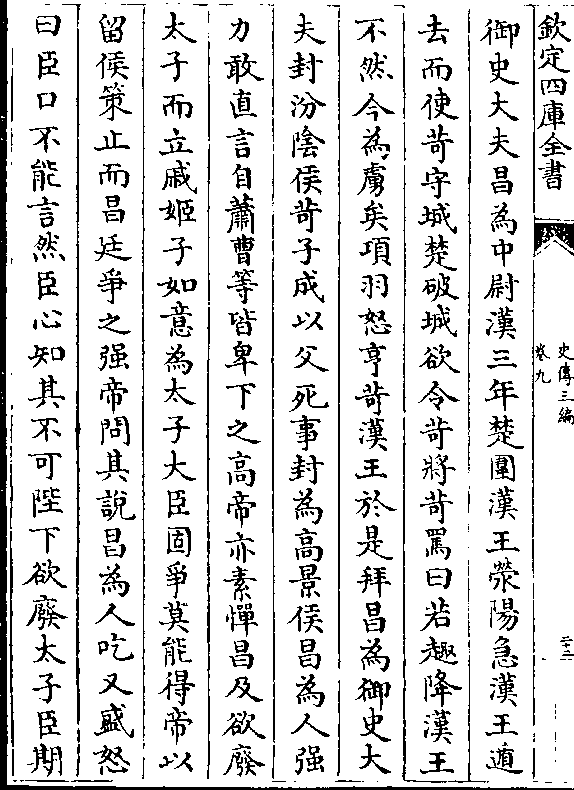 欽定四庫全書
史傳三編
卷九
二十二
御史大夫昌為中尉漢三年楚圍漢王滎陽急漢王遁
去而使苛守城楚破城欲令苛將苛罵曰若趣降漢王
不然今為虜矣項羽怒亨苛漢王於是拜昌為御史大
夫封汾陰侯苛子成以父死事封為高景侯昌為人强
力敢直言自蕭曹等皆卑下之高帝亦素憚昌及欲廢
太子而立戚姬子如意為太子大臣固爭莫能得帝以
留侯策止而昌廷爭之强帝問其說昌為人吃又盛怒
曰臣口不能言然臣心知其不可陛下欲廢太子臣期